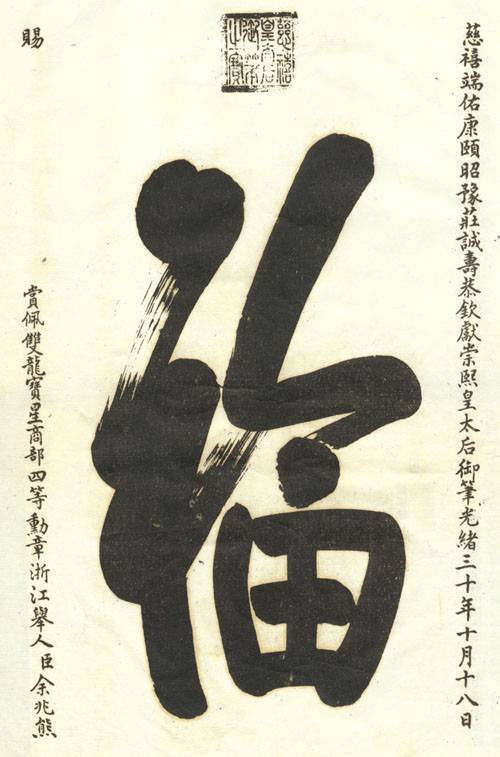 慈禧端佑康頤昭豫莊誠壽恭欽獻崇熙皇太后御筆光緒三十年十月十八日
慈禧皇太后御筆之寶
福
賜
賞佩雙龍寶星商部四等勳章浙江舉人臣余兆熊